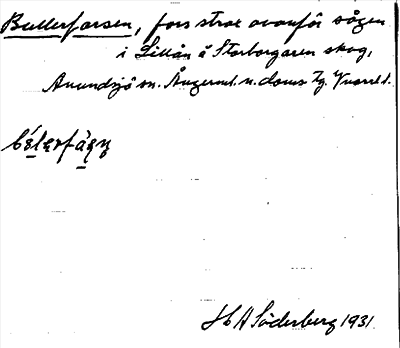 Bullerforsen, fors strax ovanför sågen
i Lillån å Storborgaren skog,
Anundsjö sn. Ångerml. n. doms Tg.
H A Söderberg 1931